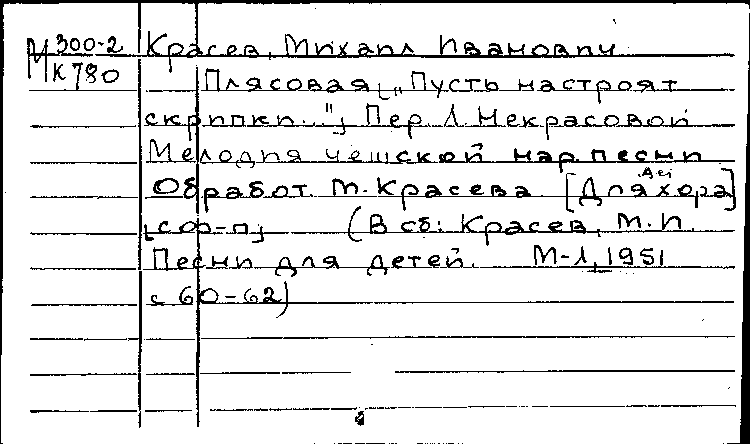 М 300-2 Красев, Михаил Иванович
К780
Плясовая [„Пусть настроят
скрипки..."] Пер Л. Некрасовой
Мелодия чешской нар. песни
Обработ. М. Красева [Для дет хора]
[с ф-п] (В сб: Красев, М. И.
Песни для детей. М-Л, 1951
с 60-62)